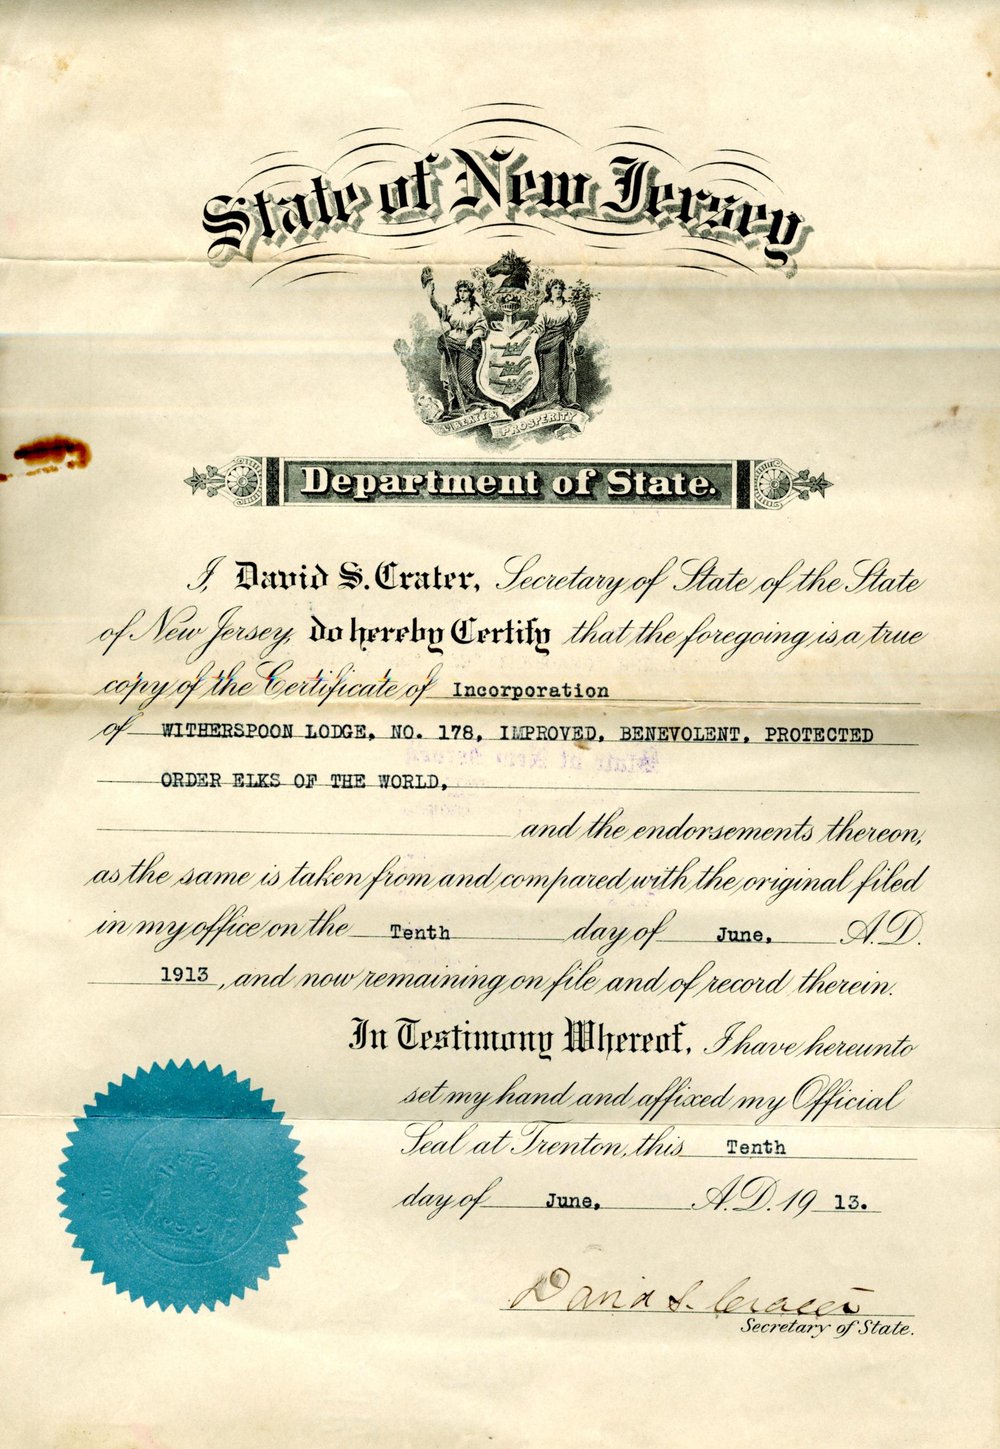 State of New Jersey
LIBERTY & PROSPERITY
Department of State.
I, David S. Crater, Secretary of State of the State
of New Jersey, do hereby Certify that the foregoing is a true
copy of the Certificate of Incorporation
of WITHERSPOON LODGE, NO. 178, IMPROVED, BENEVOLENT, PROTECTED
ORDER ELKS OF THE WORLD,
and the endorsements thereon,
as the same is taken from and compared with the original filed
in my office on the Tenth day of June, A.D.
1913, and now remaining on file and of record therein.
In Testimony Whereof, I have hereunto
set my hand and affixed my Official
Seal at Trenton, this Tenth
day of June, A.D. 1913.
David S. Crater
Secretary of State.